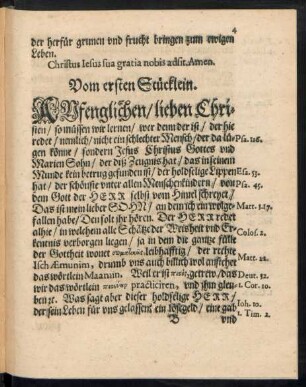 4
der herfür grunen vnd frucht bringen zum ewigen
Leben.
Christus Iesus sua gratia nobis adsit. Amen.
Vom ersten Stücklein.
AVfenglichen / lieben Chri-
sten / so müssen wir lernen / wer denn der ist / der hie
redet / nemlich / nicht ein schlechter Mensch / der da lü- Psa. 116.
gen könne / sondern Jesus Christus Gottes vnd
Marien Sohn / der diß Zeugnis hat / das in seinem
Mund kein betrug gefunden ist / der holdselige Lippen Esa. 53.
hat / der schönste vnter allen Menschenkindern / von Psa. 45.
dem Gott der HERR selbst vom Himel schreyet /
Das ist mein lieber SOHN / an dem ich ein wolge- Matt. 3.17.
fallen habe / Den solt ihr hören. Der HERR redet
alhie / in welchem alle Schätze der Weisheit vnd Er- Colos. 2.
kentnis verborgen liegen / ja in dem die gantze fülle
der Gottheit wonet leibhafftig / der rechte Matt. 22.
Isch Æmunim, drumb vns auch billich wol anstehet
das wörtlein Maanin. Weil er ist getrew / das Deut. 32.
wir das Wörtlein practiciren, vnd ihm gleu- 1. Cor. 10.
ben. Was sagt aber dieser holdselige HERR / Ioh. 10.
der sein Leben für vns gelassen / ein lösegeld / eine gab 1. Tim. 2.
B vnd